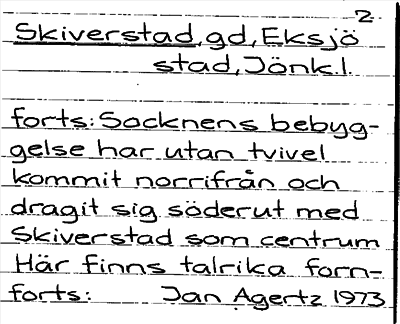 2
Skiverstad, gd, Eksjö
stad, Jönk.l.
forts: Socknens bebyg-
gelse har utan tvivel
kommit norrifrån och
dragit sig söderut med
Skiverstad som centrum
Här finns talrika forn-
forts: Jan Agertz 1973